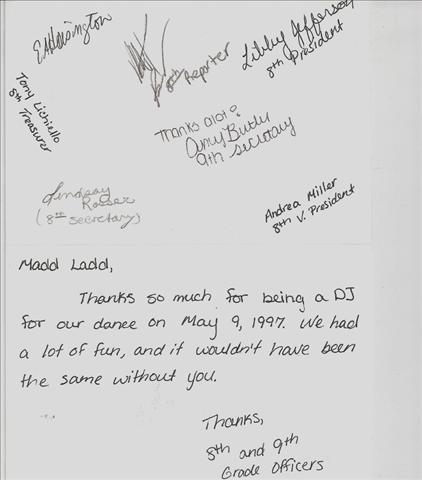 EAHensington
Tony Lichiello
8th Treasurer
8th Reporter
Libby Jefferson
8th President
Thanks alot!
Amy Butler
9th secretary
Lindsay
Rosser
(8th secretary)
Andrea Miller
8th V. President
Madd Ladd,
Thanks so much for being a DJ
for our dance on May 9, 1997. We had
a lot of fun, and it wouldn't have been
the same without you.
Thanks,
8th and 9th
Grade Officers